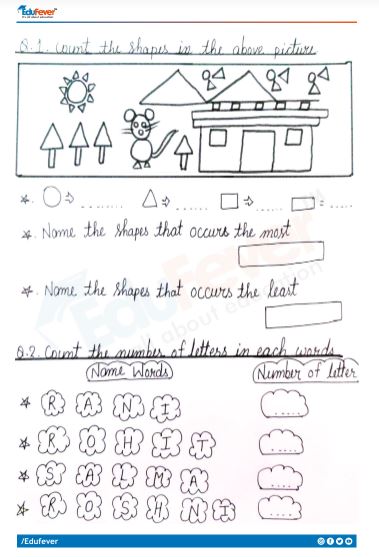 EduFever
It's all about education
Q.1. Count the shapes in the above picture
⇒ ........ ⇒ ...... ⇒ ...... = .....
Name the shapes that occurs the most
Name the shapes that occurs the least
Q.2. Count the number of letters in each words
Name Words Number of letter
R A N I .....
R O H I T .....
S A L M A .....
R O S H N I .....
EduFever
all about education
/Edufever